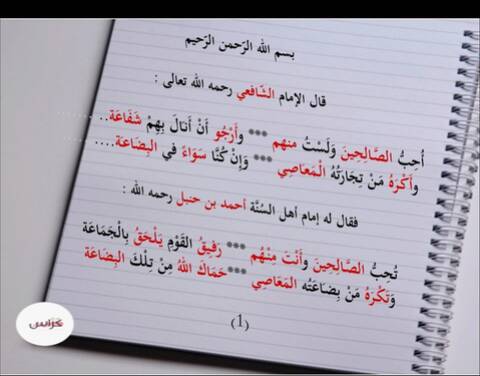 بسم الله الرّحمن الرّحيم
قال الإمام الشّافعي رحمه الله تعالى :
أُحِبُّ الصَّالِحِينَ وَلَسْتُ منهم *** وأَرْجُو أَنْ أَنَالَ بِهِمْ شَفَاعَة..
وأَكْرَهُ مَنْ تِجَارَتُهُ الْمَعَاصِي *** وَإِنْ كُنَّا سَوَاءً في البِضَاعَة....
فقال له إمام أهل السُنَّة أحمد بن حنبل رحمه الله :
تُحبُّ الصَّالِحِينَ وأَنْتَ مِنْهُم *** رَفِيقُ القَوْمِ يَلْحَقُ بِالْجَمَاعَة
وَتَكْرَهُ مَنْ بِضَاعَتُه المَعَاصِي ***حَمَاكَ اللهُ مِنْ تِلْكَ البِضَاعَة
(1)
كراس